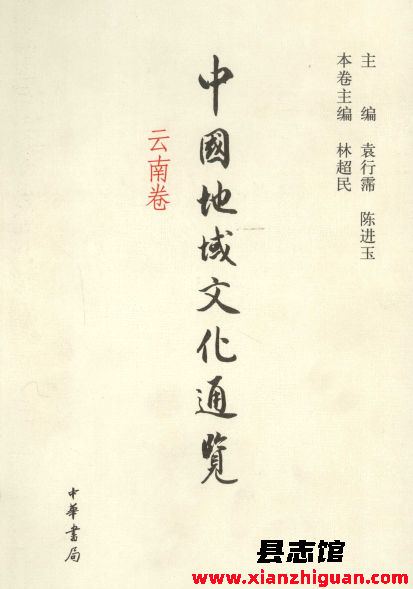 主 编 袁行霈 陈进玉
本卷主编 林超民
中國地域文化通覽
云南卷
中華書局
县志馆
www.xianzhiguan.com